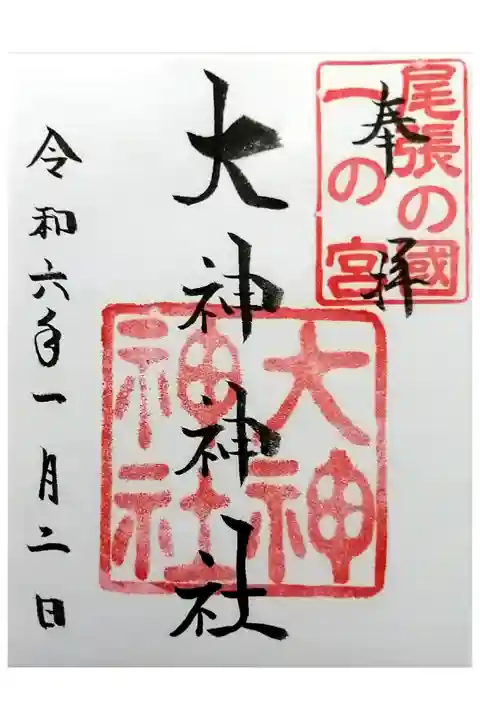 尾張の國
一の宮
奉拝
大神神社
大神
神社
令和六年一月二日